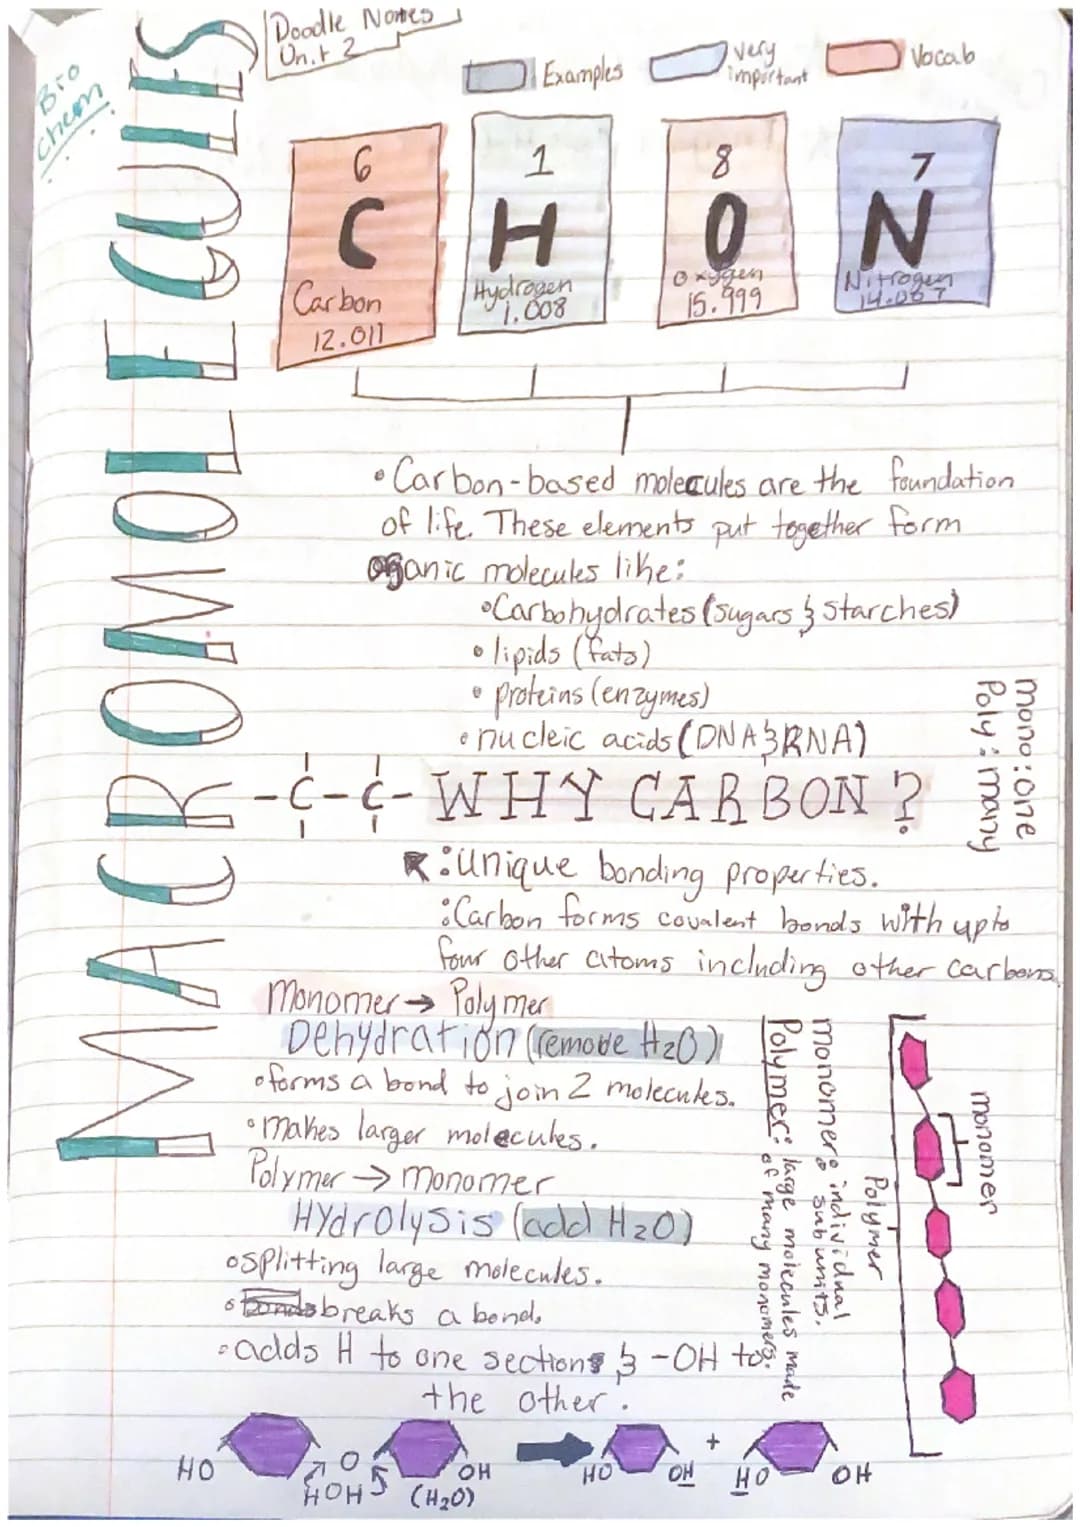 Bio
Chem
Doodle Notes
Unit 2
Examples
very
important
Vocab
MACROMOLECULES
6
C
Carbon
12.011
1
H
Hydrogen
1.008
8
O
Oxygen
15.999
7
N
Nitrogen
14.007
• Carbon-based molecules are the foundation
of life. These elements put together form
organic molecules like:
• Carbohydrates (sugars & starches)
• lipids (fats)
• proteins (enzymes)
• nucleic acids (DNA & RNA)
mono: one
Poly: many
-C-C- WHY CARBON?
: Unique bonding properties.
: Carbon forms covalent bonds with upto
four other atoms including other carbons
Monomer → Polymer
Dehydration (remove H2O)
• forms a bond to join 2 molecules.
• makes larger molecules.
Polymer → monomer
Hydrolysis (add H2O)
• splitting large molecules.
• breaks a bond.
• adds H to one section & -OH to
the other.
monomer: individual
subunits.
Polymer: large molecules made
of many monomers.
monomer
Polymer
HO O OH HO OH + HO OH
HOH (H2O)